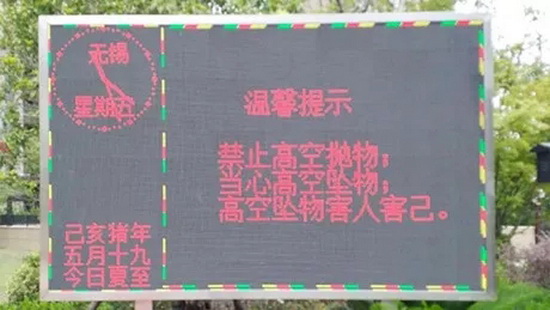 无锡
星期五
己亥猪年
五月十九
今日夏至
温馨提示
禁止高空抛物；
当心高空坠物；
高空坠物害人害己。